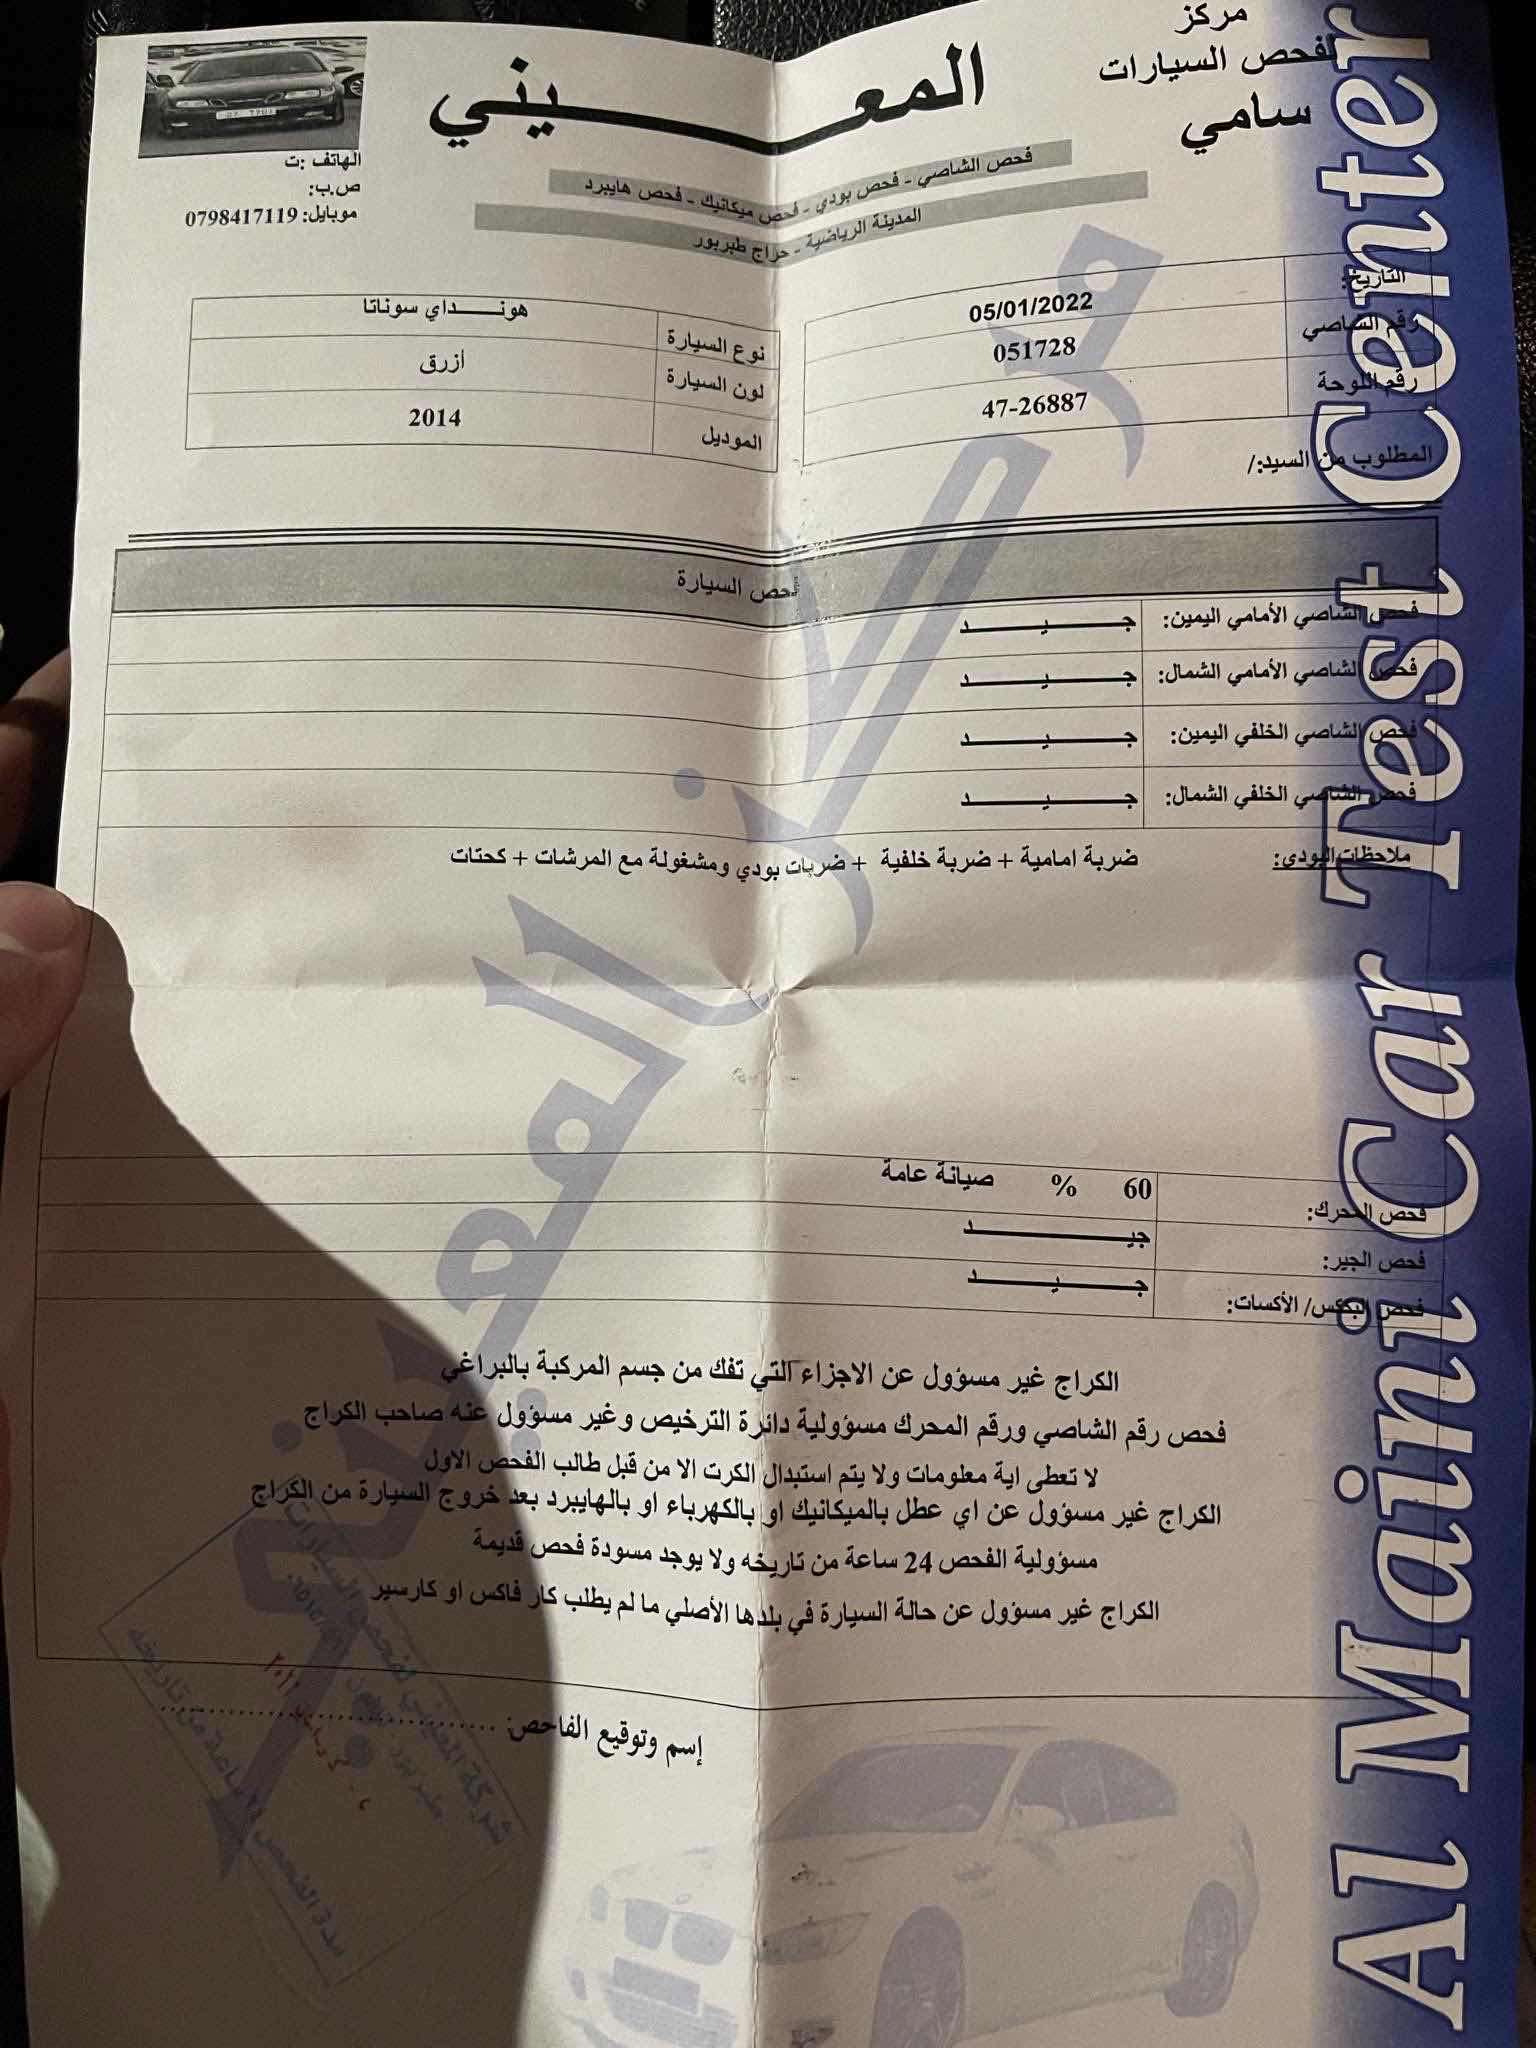 مركز
لفحص السيارات
سامي
المعـــــيني
فحص الشاصي - فحص بودي - فحص ميكانيك - فحص هايبرد
المدينة الرياضية - حراج طبربور
الهاتف :ت
ص.ب:
موبايل: 0798417119
التاريخ: 05/01/2022
رقم الشاصي 051728
رقم اللوحة 47-26887
نوع السيارة هونـــــداي سوناتا
لون السيارة أزرق
الموديل 2014
المطلوب من السيد:/
فحص السيارة
فحص الشاصي الأمامي اليمين: جـــــيـــــد
فحص الشاصي الأمامي الشمال: جـــــيـــــد
فحص الشاصي الخلفي اليمين: جـــــيـــــد
فحص الشاصي الخلفي الشمال: جـــــيـــــد
ملاحظات البودي: ضربة امامية + ضربة خلفية + ضربات بودي ومشغولة مع المرشات + كحتات
فحص المحرك: 60 % صيانة عامة
فحص الجير: جيـــــــــد
فحص البكس/ الأكسات: جـــــيـــــد
الكراج غير مسؤول عن الاجزاء التي تفك من جسم المركبة بالبراغي
فحص رقم الشاصي ورقم المحرك مسؤولية دائرة الترخيص وغير مسؤول عنه صاحب الكراج
لا تعطى اية معلومات ولا يتم استبدال الكرت الا من قبل طالب الفحص الاول
الكراج غير مسؤول عن اي عطل بالميكانيك او بالكهرباء او بالهايبرد بعد خروج السيارة من الكراج
مسؤولية الفحص 24 ساعة من تاريخه ولا يوجد مسودة فحص قديمة
الكراج غير مسؤول عن حالة السيارة في بلدها الأصلي ما لم يطلب كار فاكس او كارسير
إسم وتوقيع الفاحص: ..............................
شركة المعيني لفحص السيارات
طبربور
مدة الفحص ٢٤ ساعة من تاريخه
مركز المعيني
Al Maini Car Test Center